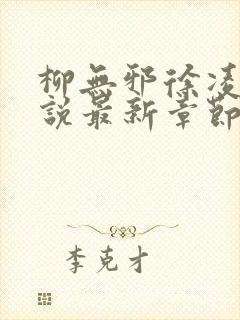 柳無邪徐凌
說最新章節
李克才